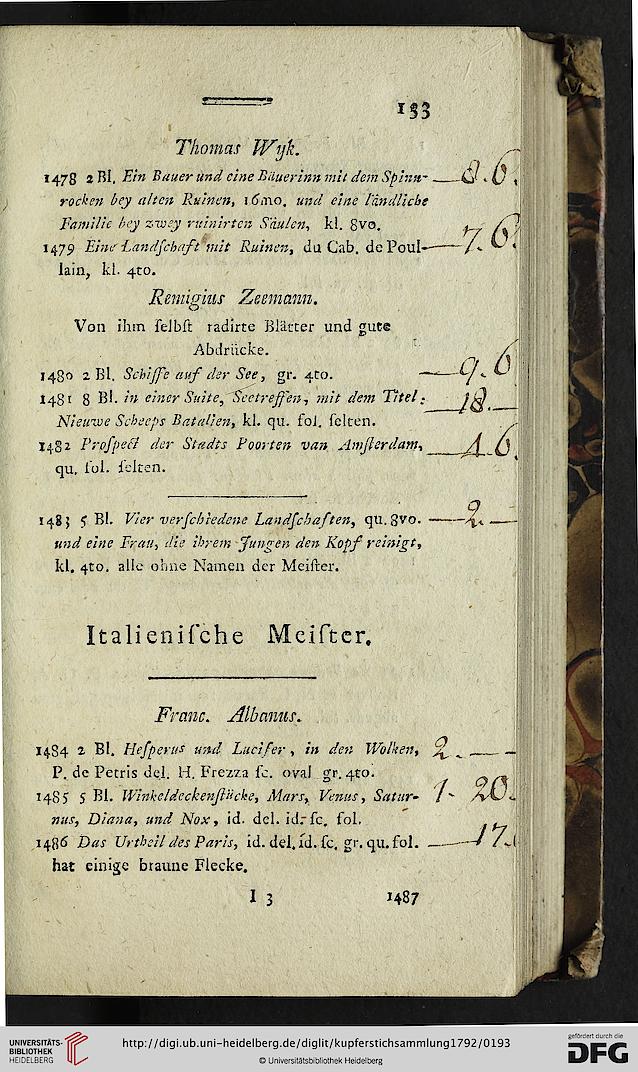 133
Thomas Wyk.
1478 2 Bl. Ein Bauer und eine Bäuerinn mit dem Spinn- — 8. 6.
rocken bey alten Ruinen, 16mo. und eine ländliche
Familie bey zwey ruinirten Säulen, kl. 8vo.
1479 Eine Landſchaft mit Ruinen, du Cab. de Poul- — 7. 6.
lain, kl. 4to.
Remigius Zeemann.
Von ihm ſelbſt radirte Blätter und gute
Abdrücke.
1480 2 Bl. Schiffe auf der See, gr. 4to. — 9. 6
1481 8 Bl. in einer Suite, Seetreffen, mit dem Titel: — 18. —
Nieuwe Scheeps Batalien, kl. qu. fol. ſelten.
1482 Proſpect der Stadts Poorten van Amſterdam, — 4. 6.
qu. fol. ſelten.
1483 5 Bl. Vier verſchiedene Landſchaften, qu. 8vo. — 2. —
und eine Frau, die ihrem Jungen den Kopf reinigt,
kl. 4to. alle ohne Namen der Meiſter.
Italieniſche Meiſter.
Franc. Albanus.
1484 2 Bl. Heſperus und Lucifer, in den Wolken, 2. — —
P. de Petris del. H. Frezza ſc. oval gr. 4to.
1485 5 Bl. Winkeldeckenſtücke, Mars, Venus, Satur- 1. 20.
nus, Diana, und Nox, id. del. id. ſc. fol.
1486 Das Urtheil des Paris, id. del. id. ſc. gr. qu. fol. — 17.
hat einige braune Flecke.
I 3 1487
UNIVERSITÄTS-
BIBLIOTHEK
HEIDELBERG
http://digi.ub.uni-heidelberg.de/diglit/kupferstichsammlung1792/0193
© Universitätsbibliothek Heidelberg
gefördert durch die
DFG